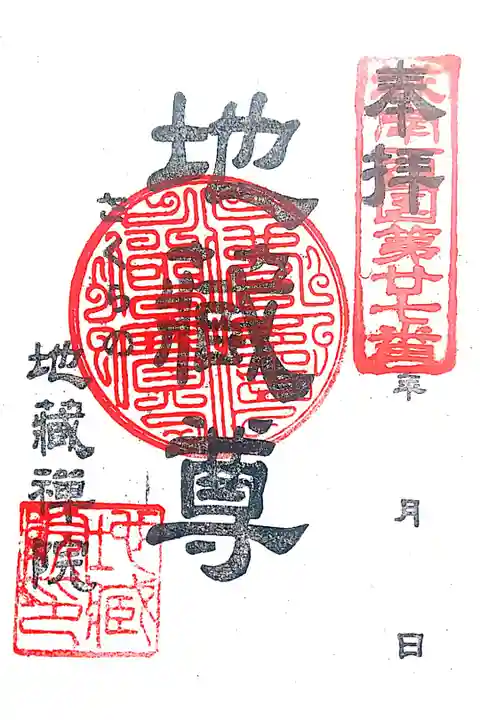 奉拝
第廿七番
年 月 日
地藏尊
さくらの
地藏禅院
地藏
院印